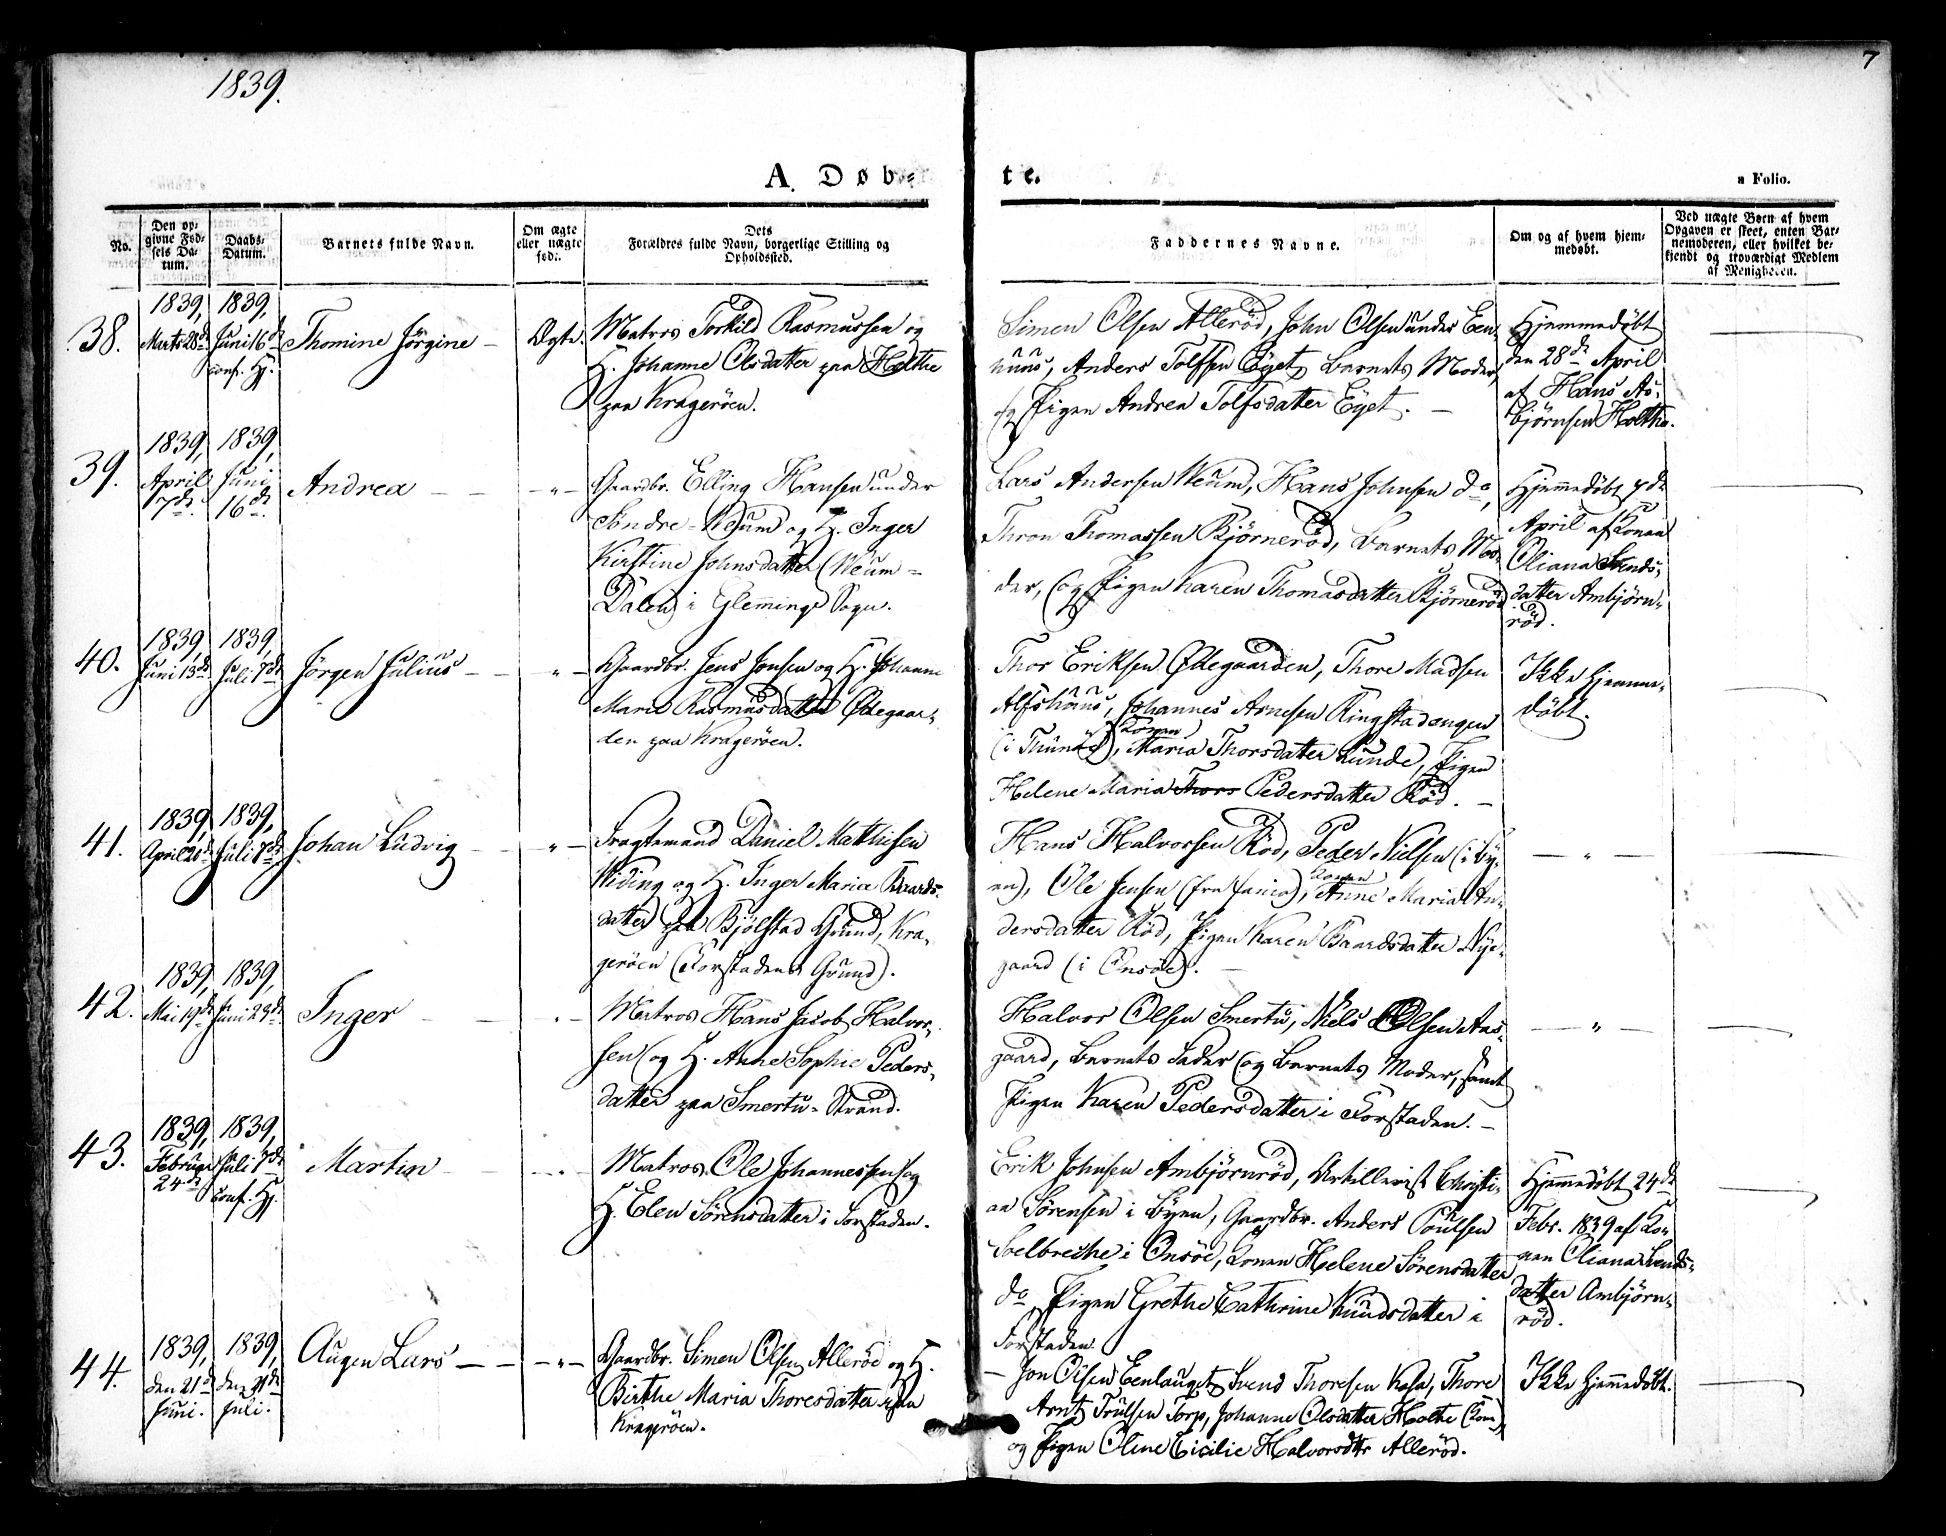 1839.
7
A. Døb-
te.
a Folio.
No.
Den op-
givne Fød-
sels Da-
tum.
Daabs-
Datum.
Barnets fulde Navn.
Om ægte
eller uægte
fød:.
Dets
Forældres fulde Navn, borgerlige Stilling og
Opholdssted.
Faddernes Navne.
Om og af hvem hjem-
medøbt.
Ved uægte Børn af hvem
Opgaven er skeet, enten Bar-
nemoderen, eller hvilket be-
kjendt og troværdigt Medlem
af Menigheden.
38.
1839,
Marts 28de
1839,
Juni 16de
Conf. Hj.
Thomine Jörgine –
Ægte.
Matros Torkild Rasmussen og
H. Johanne Olsdatter paa Holthe
paa Kragerøen.
Simen Olsen Alleröd, John Olsen under Een-
huus, Anders Tolfsen Eget, Barnets Moder,
og Pigen Andrea Tolfsdatter Eget. –
Hjemmedøbt
den 28de April
af Hans As-
bjørnsen Holthe.
39.
1839,
April
7de.
1839,
Juni
16de.
Andrea – –
– " –
Gaardbr. Elling Hansen under
Søndre-Weum og H. Inger
Kirstine Johnsdatter (Weum-
Dalen) i Glemminge Sogn.
Lars Andersen Weum, Hans Johnsen do,
Thron Thomassen Bjørneröd, Barnets Mo-
der, og Pigen Karen Thomasdatter Bjørneröd
Hjemmedøbt 7de
April af Konen
Oliana Svends-
datter Ambjørn-
röd.
40.
1839,
Juni 13de
1839,
Juli 7de
Jörgen Julius – –
– " –
Gaardbr. Jens Jensen og H. Johanne
Marie Rasmusdatter Ødegaar-
den paa Kragerøen.
Thor Eriksen Ødegaarden, Thore Madsen
Alfshuus, Johannes Arnesen Ringstadengen
(i Thunöe), Konen Maria Thorsdatter Lunde, Pigen
Helene Maria Thors Pedersdatter Röd. –
Ikke hjemme-
døbt.
41.
1839,
April 20de
1839,
Juli 7de
Johan Ludvig –
– " –
Fragtemand Daniel Mathisen
Widing og H. Inger Maria Baards-
datter paa Bjølstad Grund, Kra-
gerøen (Forstadens Grund).
Hans Halvorsen Röd, Peder Nielsen (i By-
en), Ole Jensen (fra ), Konen Anne Maria An-
dersdatter Röd, Pigen Karen Baardsdatter Nye-
gaard (i Onsöe). –
– " –
42.
1839,
Mai 19de
1839,
Juni 23de
Inger – –
– " –
Matros Hans Jacob Halvor-
sen og H. Anne Sophie Peders-
datter paa Smertu-Strand.
Halvor Olsen Smertu, Niels Olsen Aas-
gaard, Barnets Fader og Barnets Moder, samt
Pigen Karen Pedersdatter i Forstaden. –
– " –
43.
1839,
Februar
24de.
1839,
Juli 7de
Conf. Hj.
Martin – –
– " –
Matros Ole Johannessen og
H. Elen Sörensdatter i Forstaden.
Erik Johnsen Ambjørnröd, Artillerist Christi-
an Sörensen i Byen, Gaardbr. Anders Poulsen
Soelbrecke i Onsöe, Konen Helene Sörensdatter
do, Pigen Grethe Cathrine Knudsdatter i
Forstaden.
Hjemmedøbt 24de
Febr. 1839 af Ko-
nen Oliana Svends-
datter Ambjørn-
röd.
44.
1839,
den 21de
Juni.
1839,
den 21de
Juli.
Augen Lars – –
– " –
Gaardbr. Simen Olsen Alleröe og H.
Birthe Maria Thoresdatter paa
Kragerøen.
– Jon Olsen Eenhuget, Svend Thoresen Kasa, Thore
Arntz Trulsen Torp, Johanne Olsdatter Holthe (Kone),
og Pigen Oline Cicilie Halvorsdtr Alleröd.
Ikke hjemmedøbt.